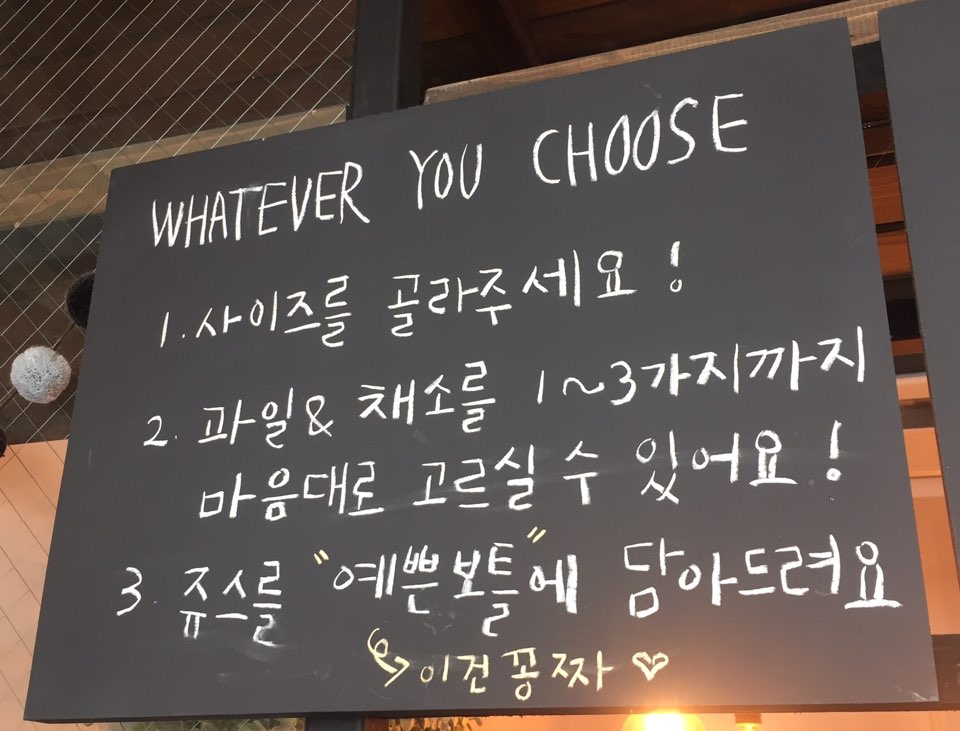 WHATEVER YOU CHOOSE
1. 사이즈를 골라주세요!
2. 과일& 채소를 1~3가지까지
마음대로 고르실 수 있어요!
3. 쥬스를 "예쁜보틀"에 담아드려요
이건 꽁짜 ♡